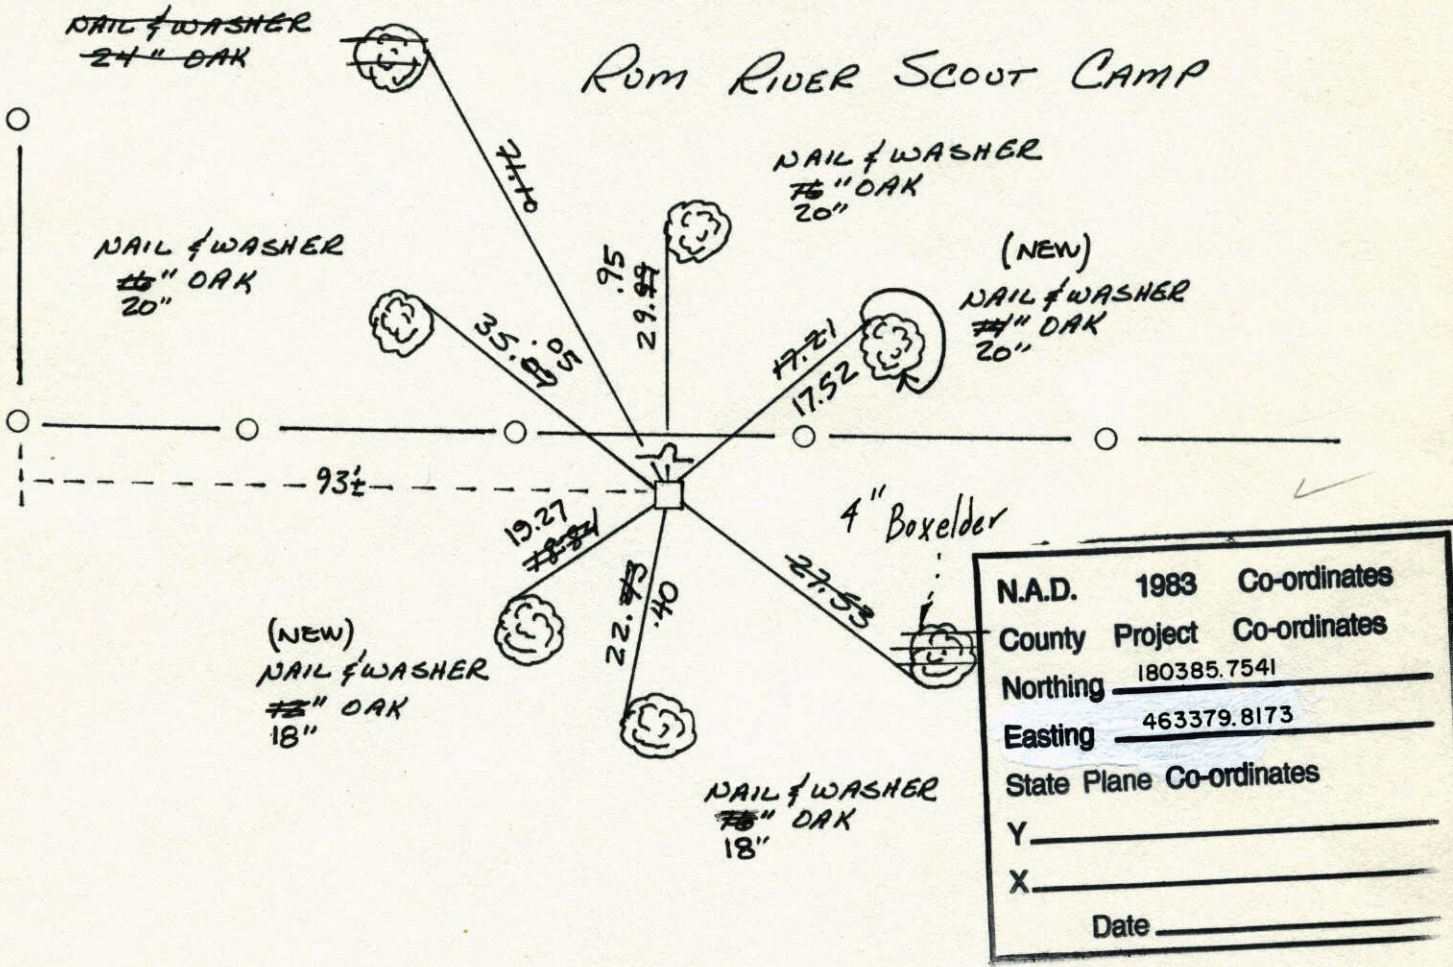 NAIL & WASHER
24" OAK
RUM RIVER SCOUT CAMP
71.10
NAIL & WASHER
16" OAK
20"
NAIL & WASHER
16" OAK
20"
.95
29.99
(NEW)
NAIL & WASHER
" OAK
20"
35.
.05
17.21
17.52
93'±
4" Boxelder
19.27
18.84
22.
.40
27.53
(NEW)
NAIL & WASHER
" OAK
18"
NAIL & WASHER
" OAK
18"
N.A.D. 1983 Co-ordinates
County Project Co-ordinates
Northing 180385.7541
Easting 463379.8173
State Plane Co-ordinates
Y
X
Date